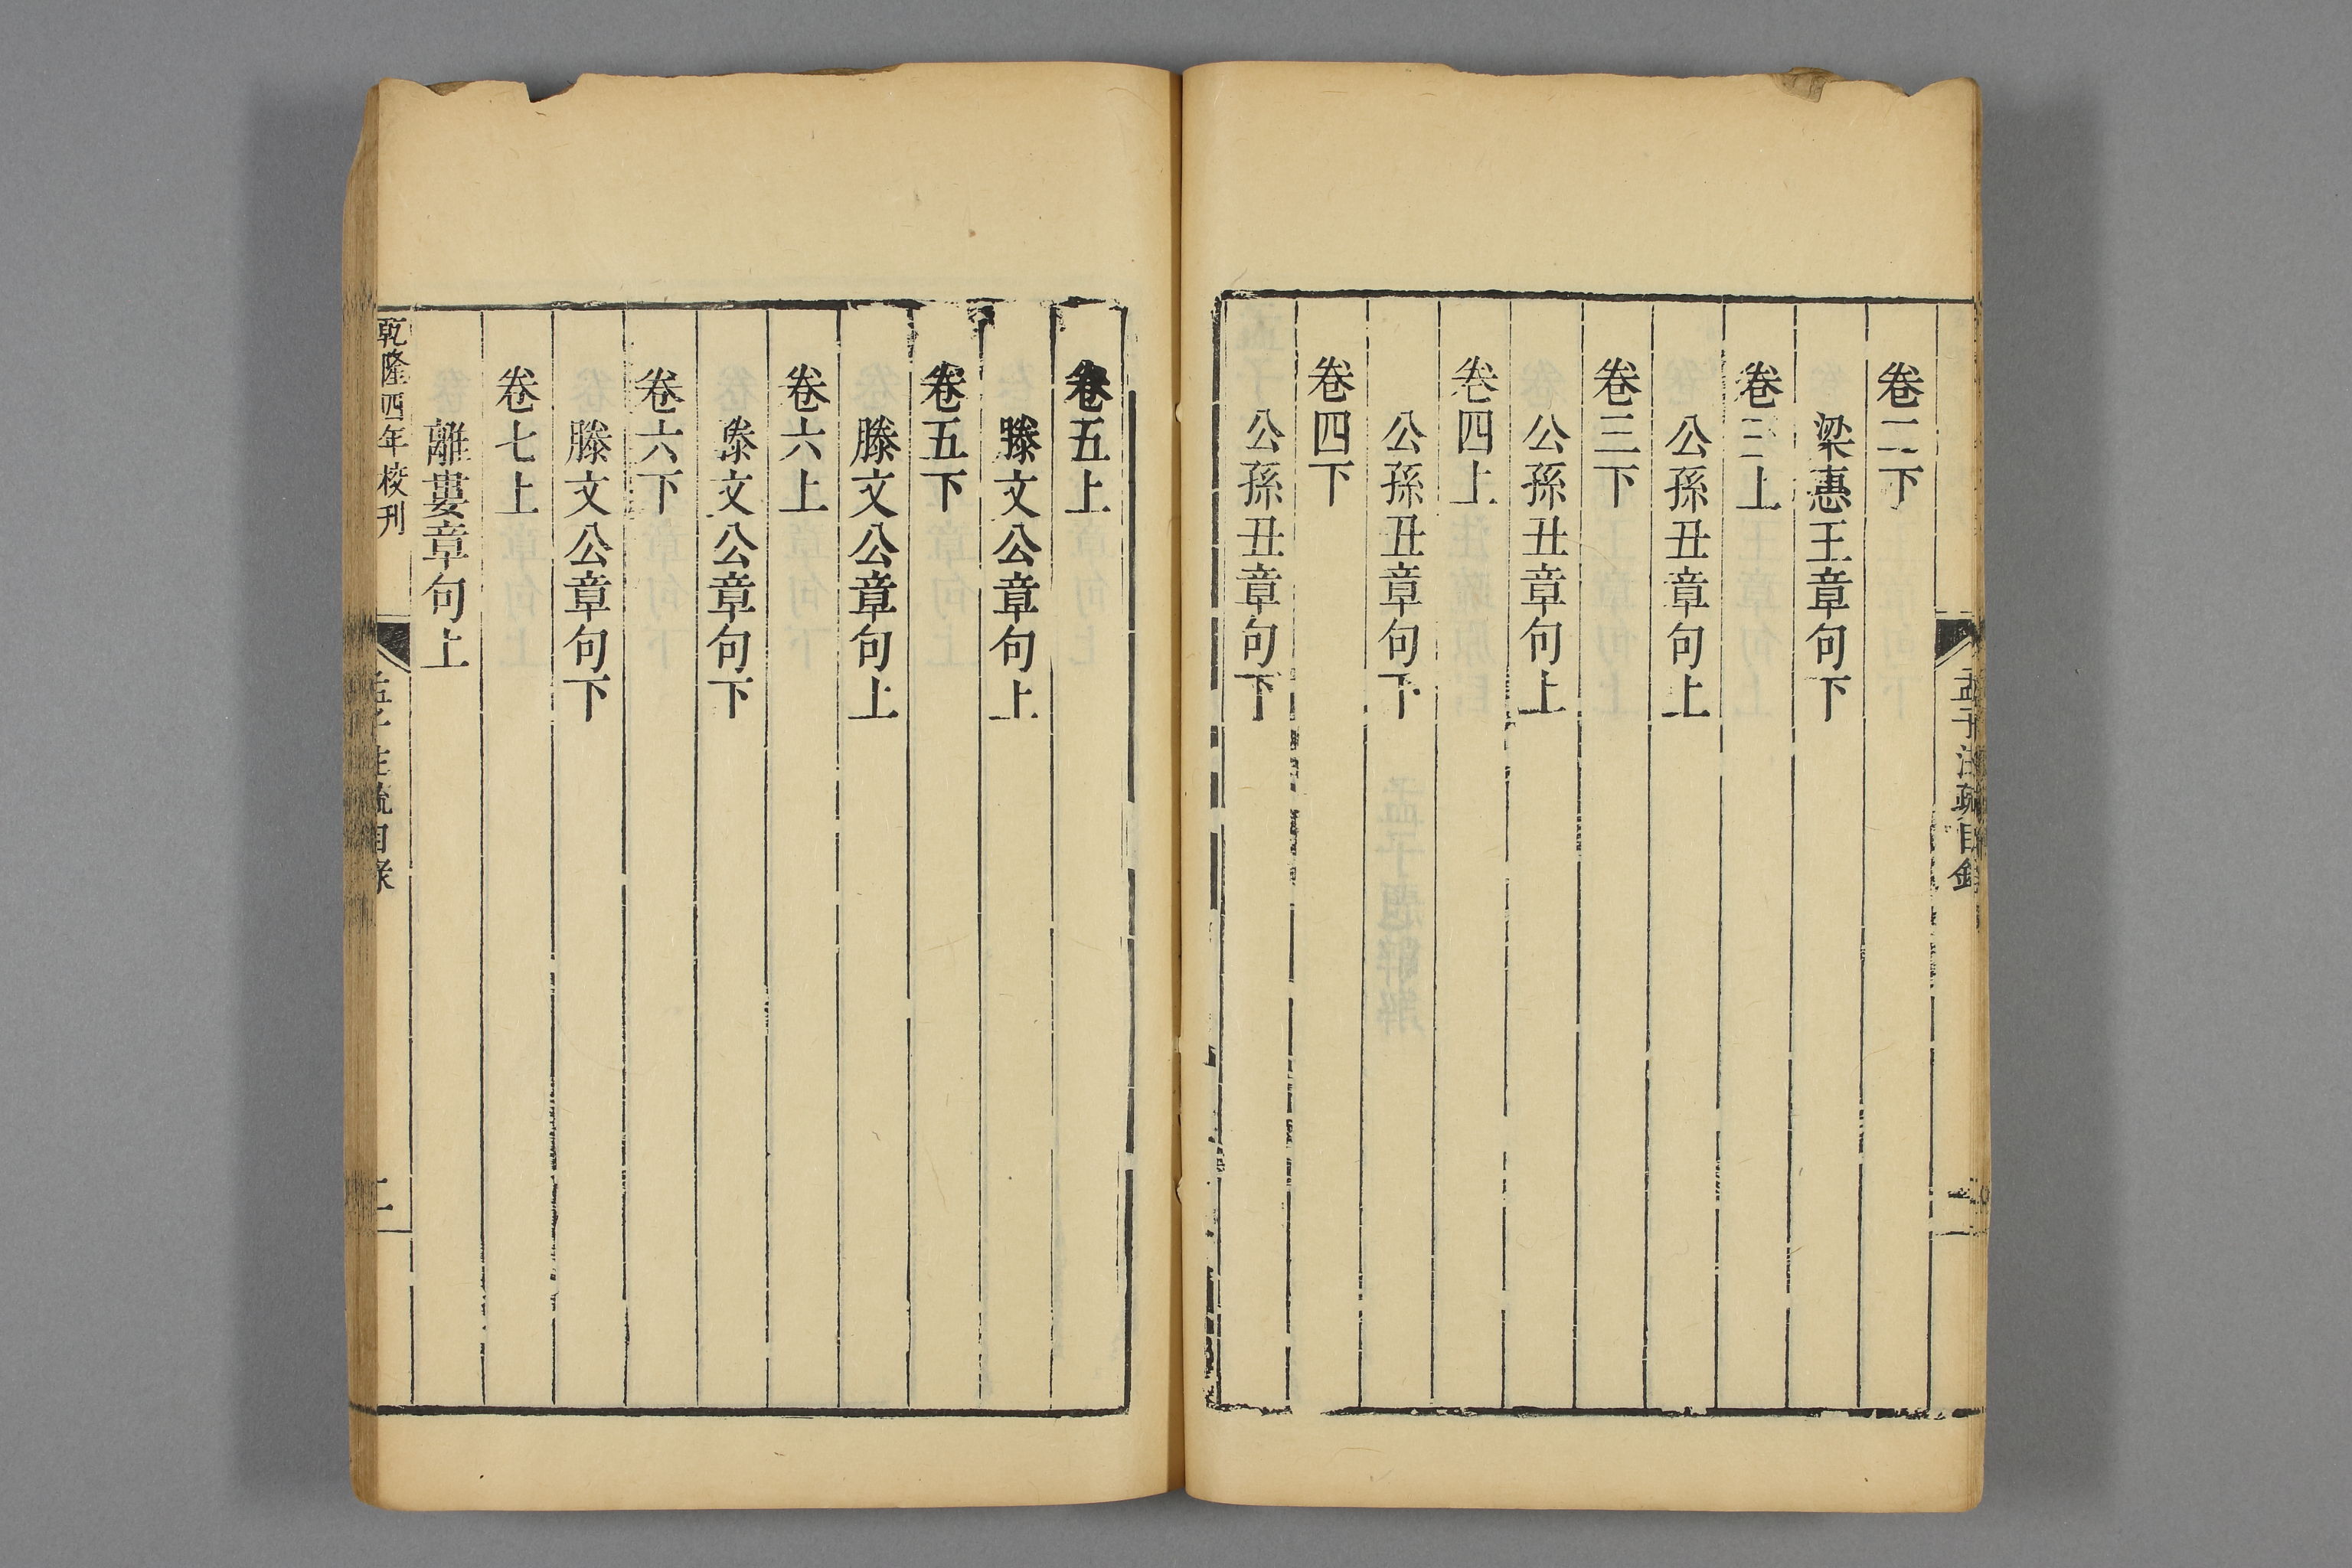 孟子注疏目錄
一
卷二下
梁惠王章句下
卷三上
公孫丑章句上
卷三下
公孫丑章句上
卷四上
公孫丑章句下
卷四下
公孫丑章句下
卷五上
滕文公章句上
卷五下
滕文公章句上
卷六上
滕文公章句下
卷六下
滕文公章句下
卷七上
離婁章句上
乾隆四年校刊
孟子注疏目錄
二